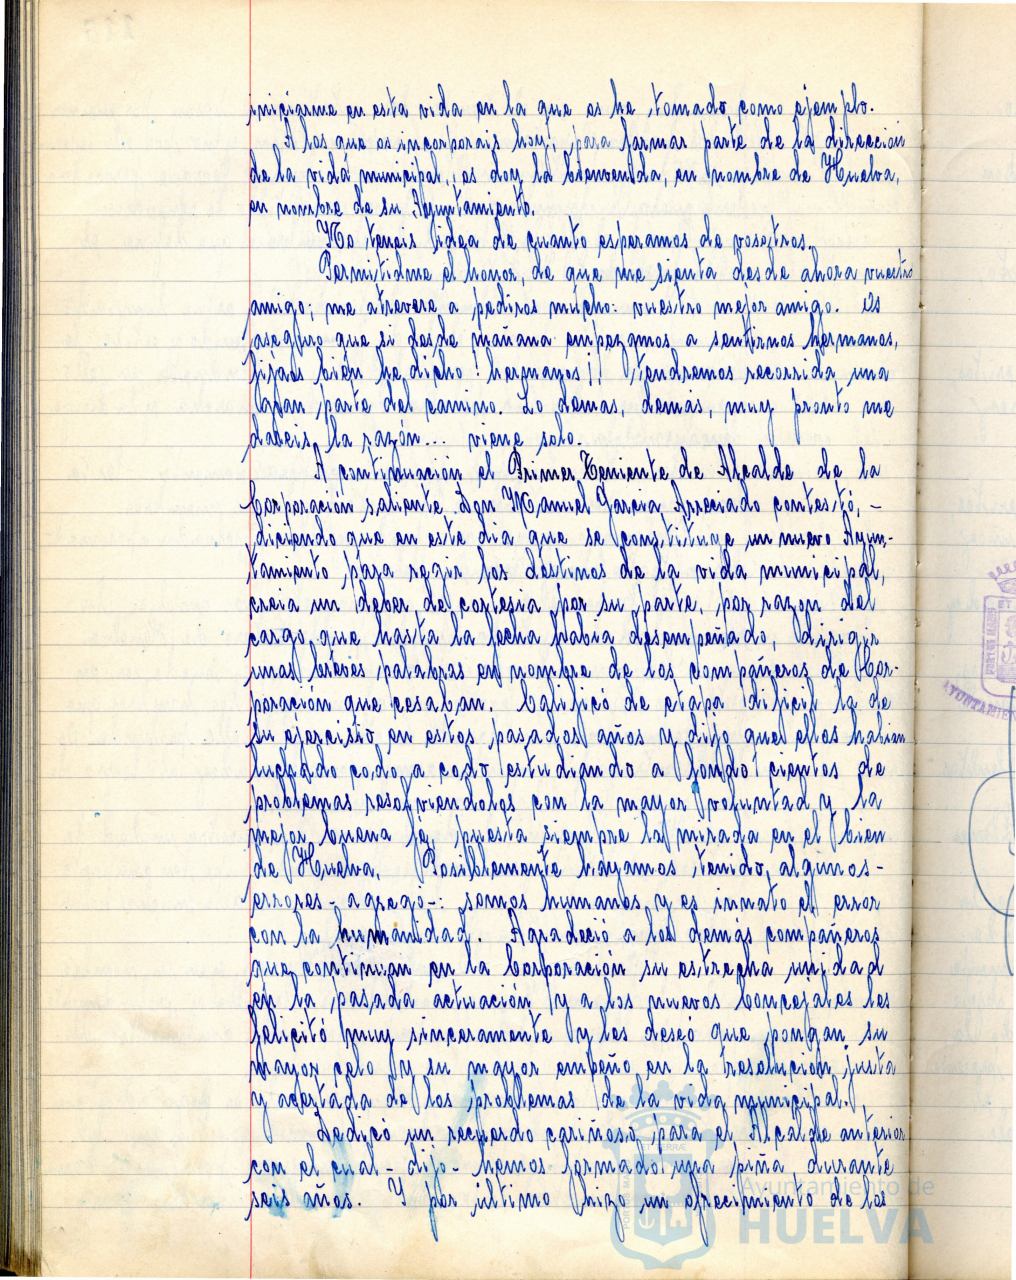 iniciarme en esta vida en la que os he tomado como ejemplo.
A los que os incorporais hoy, para formar parte de la dirección
de la vida municipal, os doy la bienvenida, en nombre de Huelva,
en nombre de su Ayuntamiento.
No teneis idea de cuanto esperamos de vosotros.
Permitidme el honor, de que me sienta desde ahora vuestro
amigo; me atrevere a pediros mucho: vuestro mejor amigo. Os
aseguro que si desde mañana empezamos a sentirnos hermanos,
fijaos bién he dicho ! hermanos!! tendremos recorrida una
gran parte del camino. Lo demas, demás, muy pronto me
dareis la razón... viene solo.
A continuación el Primer Teniente de Alcalde de la
Corporación saliente Don Manuel Garcia Apreciado contestó, -
diciendo que en este dia que se constituye un nuevo Ayun-
tamiento para regir los destinos de la vida municipal,
creia un deber de cortesia por su parte, por razon del
cargo que hasta la fecha habia desempeñado, dirigir
unas breves palabras en nombre de los compañeros de Cor-
poración que cesaban. Calificó de etapa dificil la de
su ejercicio en estos pasados años y dijo que ellos habian
luchado codo a codo estudiando a fondo cientos de
problemas resolviendolos con la mayor voluntad y la
mejor buena fé, puesta siempre la mirada en el bien
de Huelva. Posiblemente hayamos tenido algunos -
errores - agregó -: somos humanos y es innato el error
con la humanidad. Agradeció a los demás compañeros
que continuan en la Corporación su estrecha unidad
en la pasada actuación y a los nuevos Concejales les
felicitó muy sinceramente y les deseó que pongan su
mayor celo y su mayor empeño en la resolución justa
y acertada de los problemas de la vida municipal.
Dedicó un recuerdo cariñoso para el Alcalde anterior
con el cual - dijo - hemos formado una piña durante
seis años. Y por último hizo un ofrecimiento de los
AYUNTAMIEN
Ayuntamiento de
HUELVA